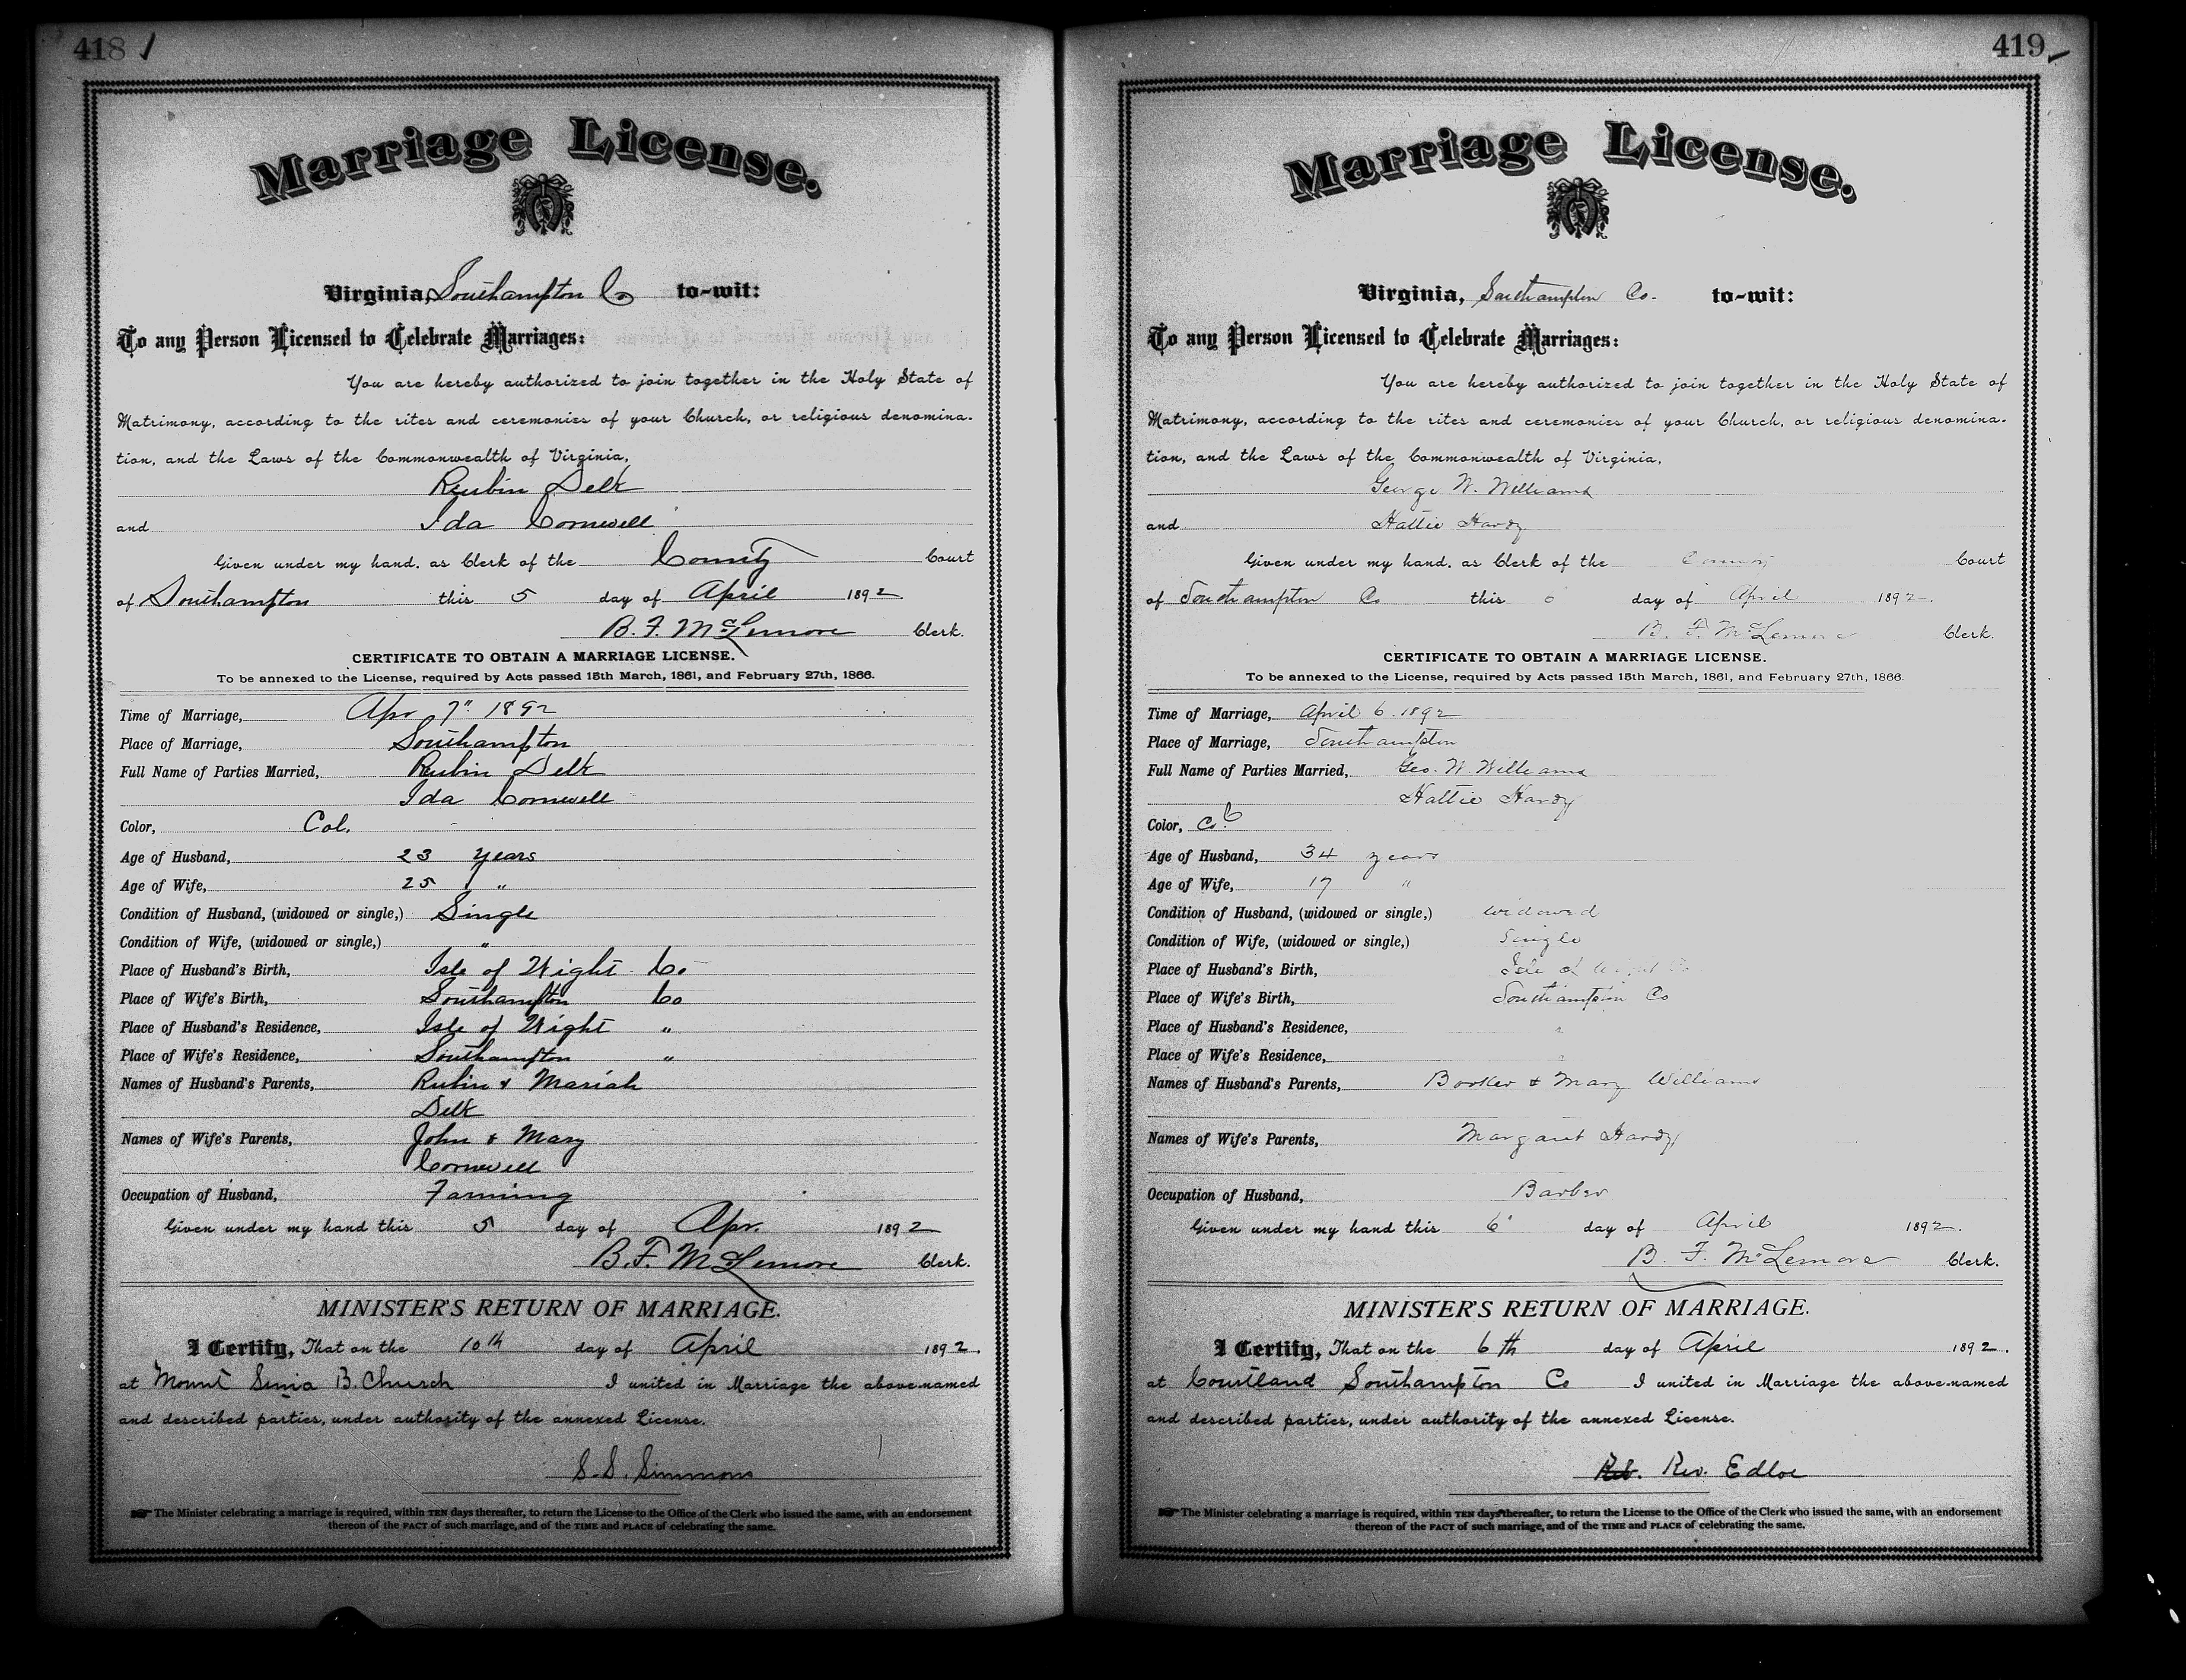 418
Marriage License.
Virginia, Southampton Co to-wit:
To any Person Licensed to Celebrate Marriages:
You are hereby authorized to join together in the Holy State of
Matrimony, according to the rites and ceremonies of your Church, or religious denomina-
tion, and the Laws of the Commonwealth of Virginia,
Reubin Delk
and Ida Cornwell
Given under my hand, as Clerk of the County Court
of Southampton this 5 day of April 1892
B. F. McLemore Clerk.
CERTIFICATE TO OBTAIN A MARRIAGE LICENSE.
To be annexed to the License, required by Acts passed 15th March, 1861, and February 27th, 1866.
Time of Marriage, Apr 7" 1892
Place of Marriage, Southampton
Full Name of Parties Married, Reubin Delk
Ida Cornwell
Color, Col.
Age of Husband, 23 years
Age of Wife, 25 "
Condition of Husband, (widowed or single,) Single
Condition of Wife, (widowed or single,) "
Place of Husband's Birth, Isle of Wight Co.
Place of Wife's Birth, Southampton Co
Place of Husband's Residence, Isle of Wight "
Place of Wife's Residence, Southampton "
Names of Husband's Parents, Rubin & Mariah
Delk
Names of Wife's Parents, John & Mary
Cornwell
Occupation of Husband, Farming
Given under my hand this 5 day of Apr. 1892
B. F. McLemore Clerk.
MINISTER'S RETURN OF MARRIAGE.
I Certify, That on the 10th day of April 1892.
at Mount Sinia B. Church I united in Marriage the above-named
and described parties, under authority of the annexed License.
S. S. Simmons
The Minister celebrating a marriage is required, within TEN days thereafter, to return the License to the Office of the Clerk who issued the same, with an endorsement
thereof of the FACT of such marriage, and of the TIME and PLACE of celebrating the same.
419
Marriage License.
Virginia, Southampton Co. to-wit:
To any Person Licensed to Celebrate Marriages:
You are hereby authorized to join together in the Holy State of
Matrimony, according to the rites and ceremonies of your Church, or religious denomina-
tion, and the Laws of the Commonwealth of Virginia,
George W. Williams
and Hattie Hardy
Given under my hand, as Clerk of the County Court
of Southampton Co this 6 day of April 1892.
B. F. McLemore Clerk.
CERTIFICATE TO OBTAIN A MARRIAGE LICENSE.
To be annexed to the License, required by Acts passed 15th March, 1861, and February 27th, 1866.
Time of Marriage, April 6. 1892
Place of Marriage, Southampton
Full Name of Parties Married, Geo. W. Williams
Hattie Hardy
Color, Col
Age of Husband, 34 years
Age of Wife, 17 "
Condition of Husband, (widowed or single,) widowed
Condition of Wife, (widowed or single,) Single
Place of Husband's Birth, Isle of Wight Co
Place of Wife's Birth, Southampton Co
Place of Husband's Residence, "
Place of Wife's Residence, "
Names of Husband's Parents, Booker & Mary Williams
Names of Wife's Parents, Margaret Hardy
Occupation of Husband, Barber
Given under my hand this 6" day of April 1892.
B. F. McLemore Clerk.
MINISTER'S RETURN OF MARRIAGE.
I Certify, That on the 6th day of April 1892.
at Courtland Southampton Co I united in Marriage the above-named
and described parties, under authority of the annexed License.
Rev. Edloe
The Minister celebrating a marriage is required, within TEN days thereafter, to return the License to the Office of the Clerk who issued the same, with an endorsement
thereon of the FACT of such marriage, and of the TIME and PLACE of celebrating the same.